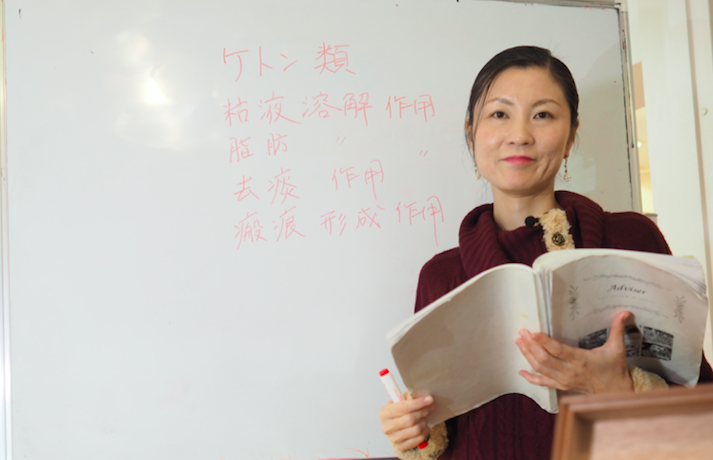 ケトン類
粘液溶解作用
脂肪 〃 〃
去痰 作用
瘢痕形成作用
Adviser